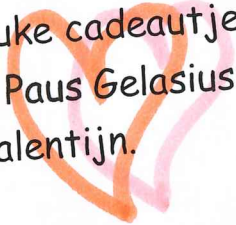 uke cadeautje
Paus Gelasius
alentijn.